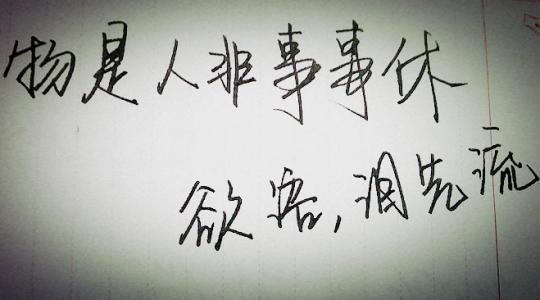 物是人非事事休
欲语,泪先流